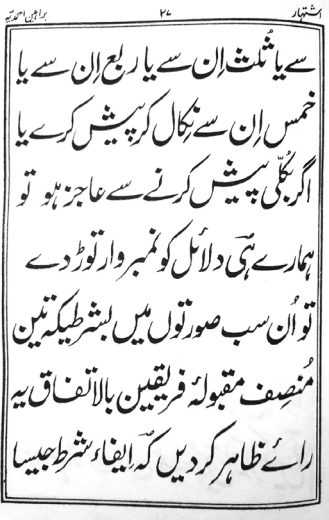 اشتہار ۲۷ براہین احمدیہ
سے یا ثُلث اِن سے یا ربع اِن سے یا
خمس اِن سے نکال کر پیش کرے یا
اگر بکُلّی پیش کرنے سے عاجز ہو تو
ہمارے ہی دلائل کو نمبروار توڑ دے
تو اُن سب صورتوں میں بشرطیکہ تین
مُنصِف مقبولۂ فریقین بالاتفاق یہ
رائے ظاہر کر دیں کہ ایفاء شرط جیسا